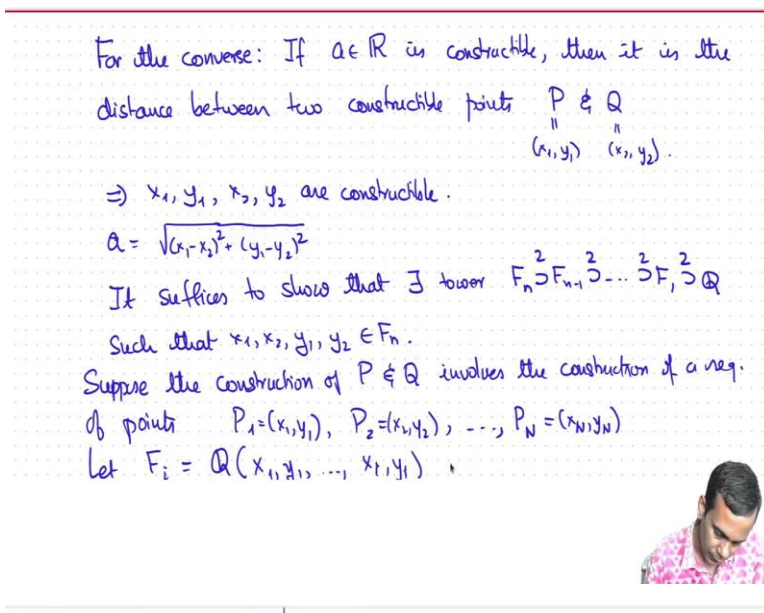 For the converse: If a ∈ ℝ is constructible, then it is the
distance between two constructible points P & Q
(x₁, y₁) (x₂, y₂).
⇒ x₁, y₁, x₂, y₂ are constructible.
a = √((x₁-x₂)² + (y₁-y₂)²)
It suffices to show that ∃ tower Fₙ ⊃² Fₙ₋₁ ⊃² ... ⊃² F₁ ⊃² ℚ
Such that x₁, x₂, y₁, y₂ ∈ Fₙ.
Suppose the construction of P & Q involves the construction of a seq.
of points P₁=(x₁,y₁), P₂=(x₂,y₂), ---, P_N=(x_N,y_N)
Let F_i = ℚ(x₁, y₁, ..., x_i, y_i)